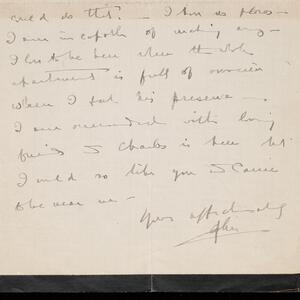 could do this? - I have no plans -
I am incapable of making any -
I love to be here where the whole
apartment is full of
when I feel his presence -
I am surrounded with loving
friends & Charles is here but
I would so like you &
to be near me -
Yours affectionately